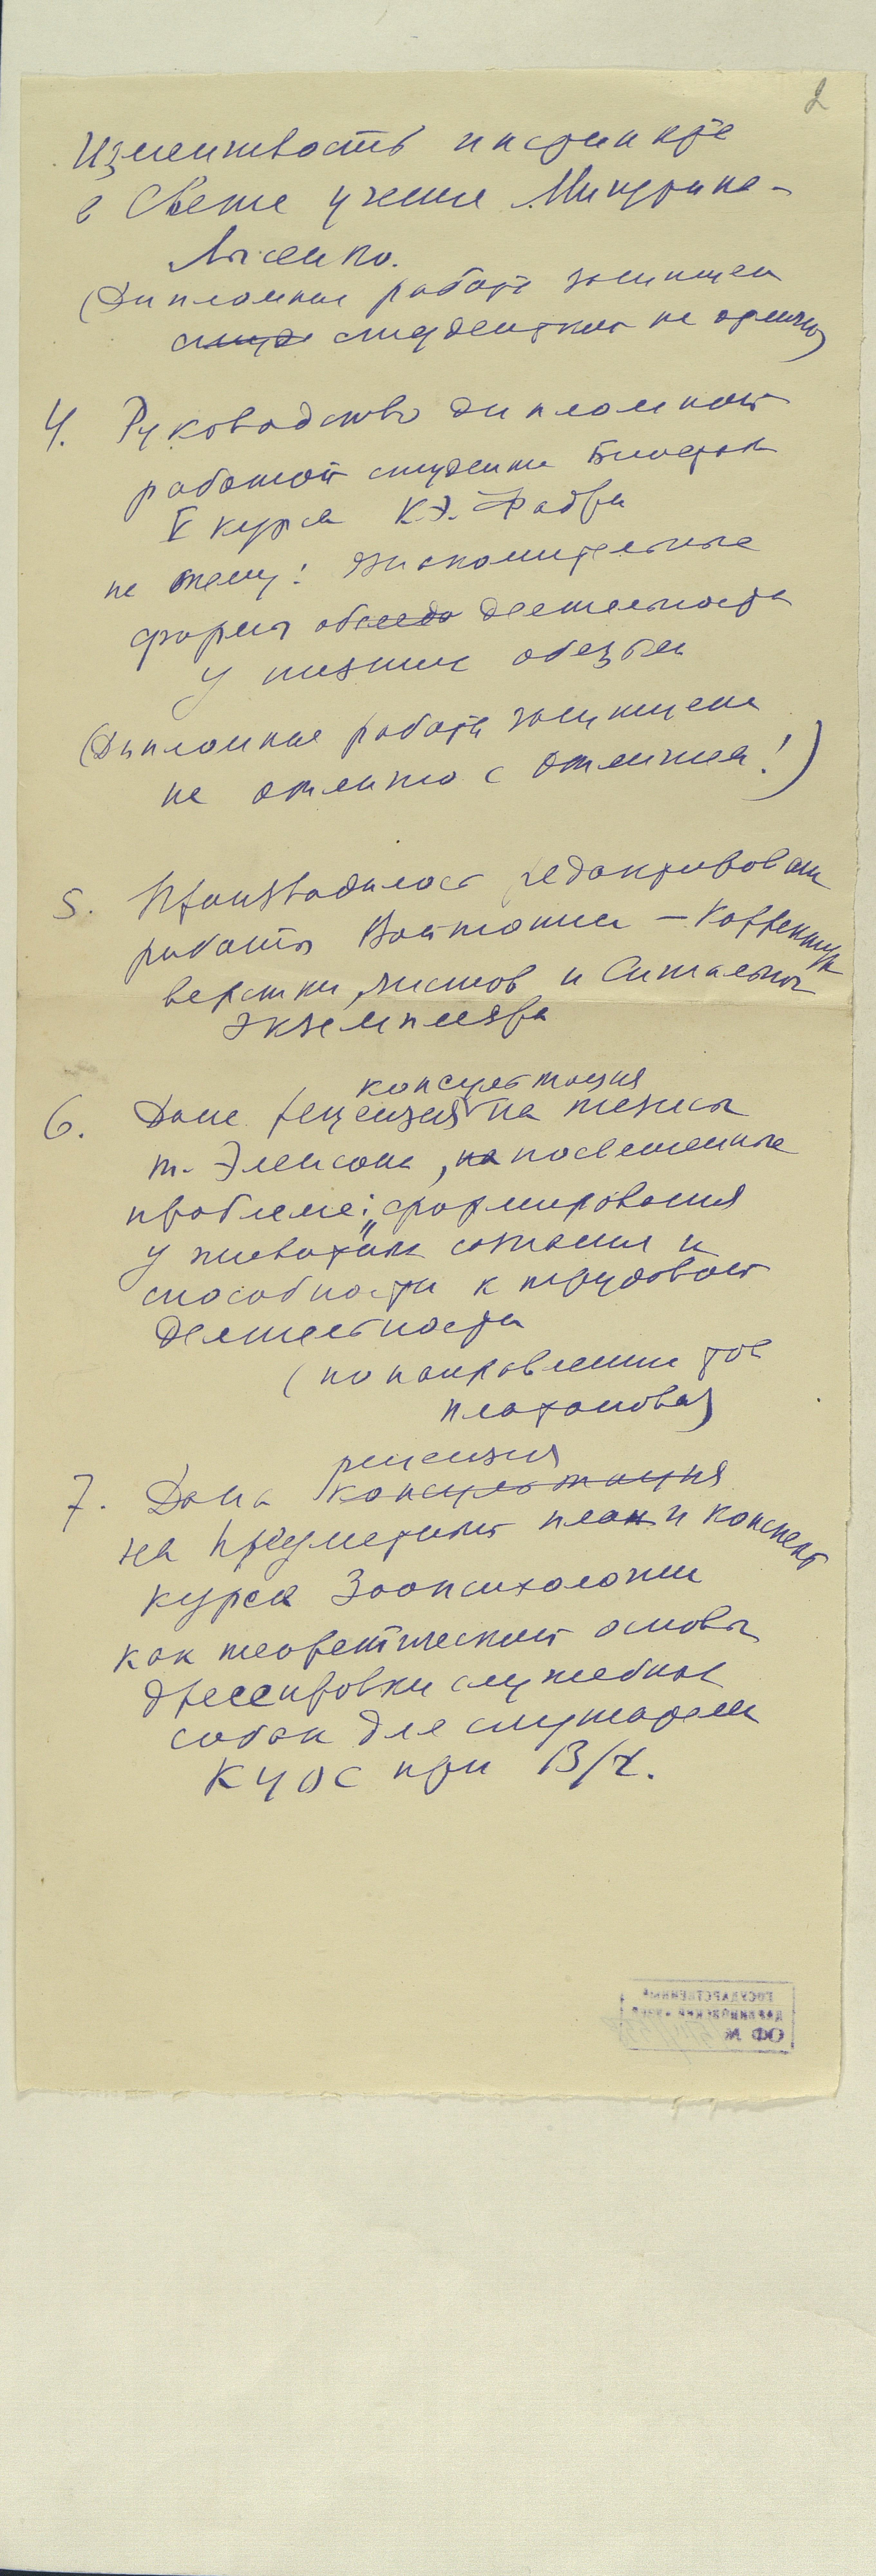 2
Изменчивость инстинкта
в Свете учения Мичурина-
Лысенко.
(Дипломная работа защищен
студ студенткой на отлично)
4. Руководство дипломной
работой студента Биофак
V курса К.Э. Фабри
на тему: Ознакомительные
формы обследо деятельности
у низших обезьян
(Дипломная работа защищена
на отлично с отличием!)
5. Производилось редактирован
работы Войтониса – Корректура
верстки, листов и Сигнальных
экземпляра
консультация
6. Дана рецензия на тезисы
т. , на посвященные
проблеме: „формирования
у животных сознания и
способности к трудовой
деятельности
(по направлению тов
Платонова)
рецензия
7. Дана консультация
на предметный план и конспект
курса Зоопсихологии
как теоретической основы
дрессировки служебных
собак для слушателей
КУОС при В/Ч.
ГОСУДАРСТВЕННЫЙ
ДАРВИНОВСКИЙ МУЗЕЙ
ОФ №